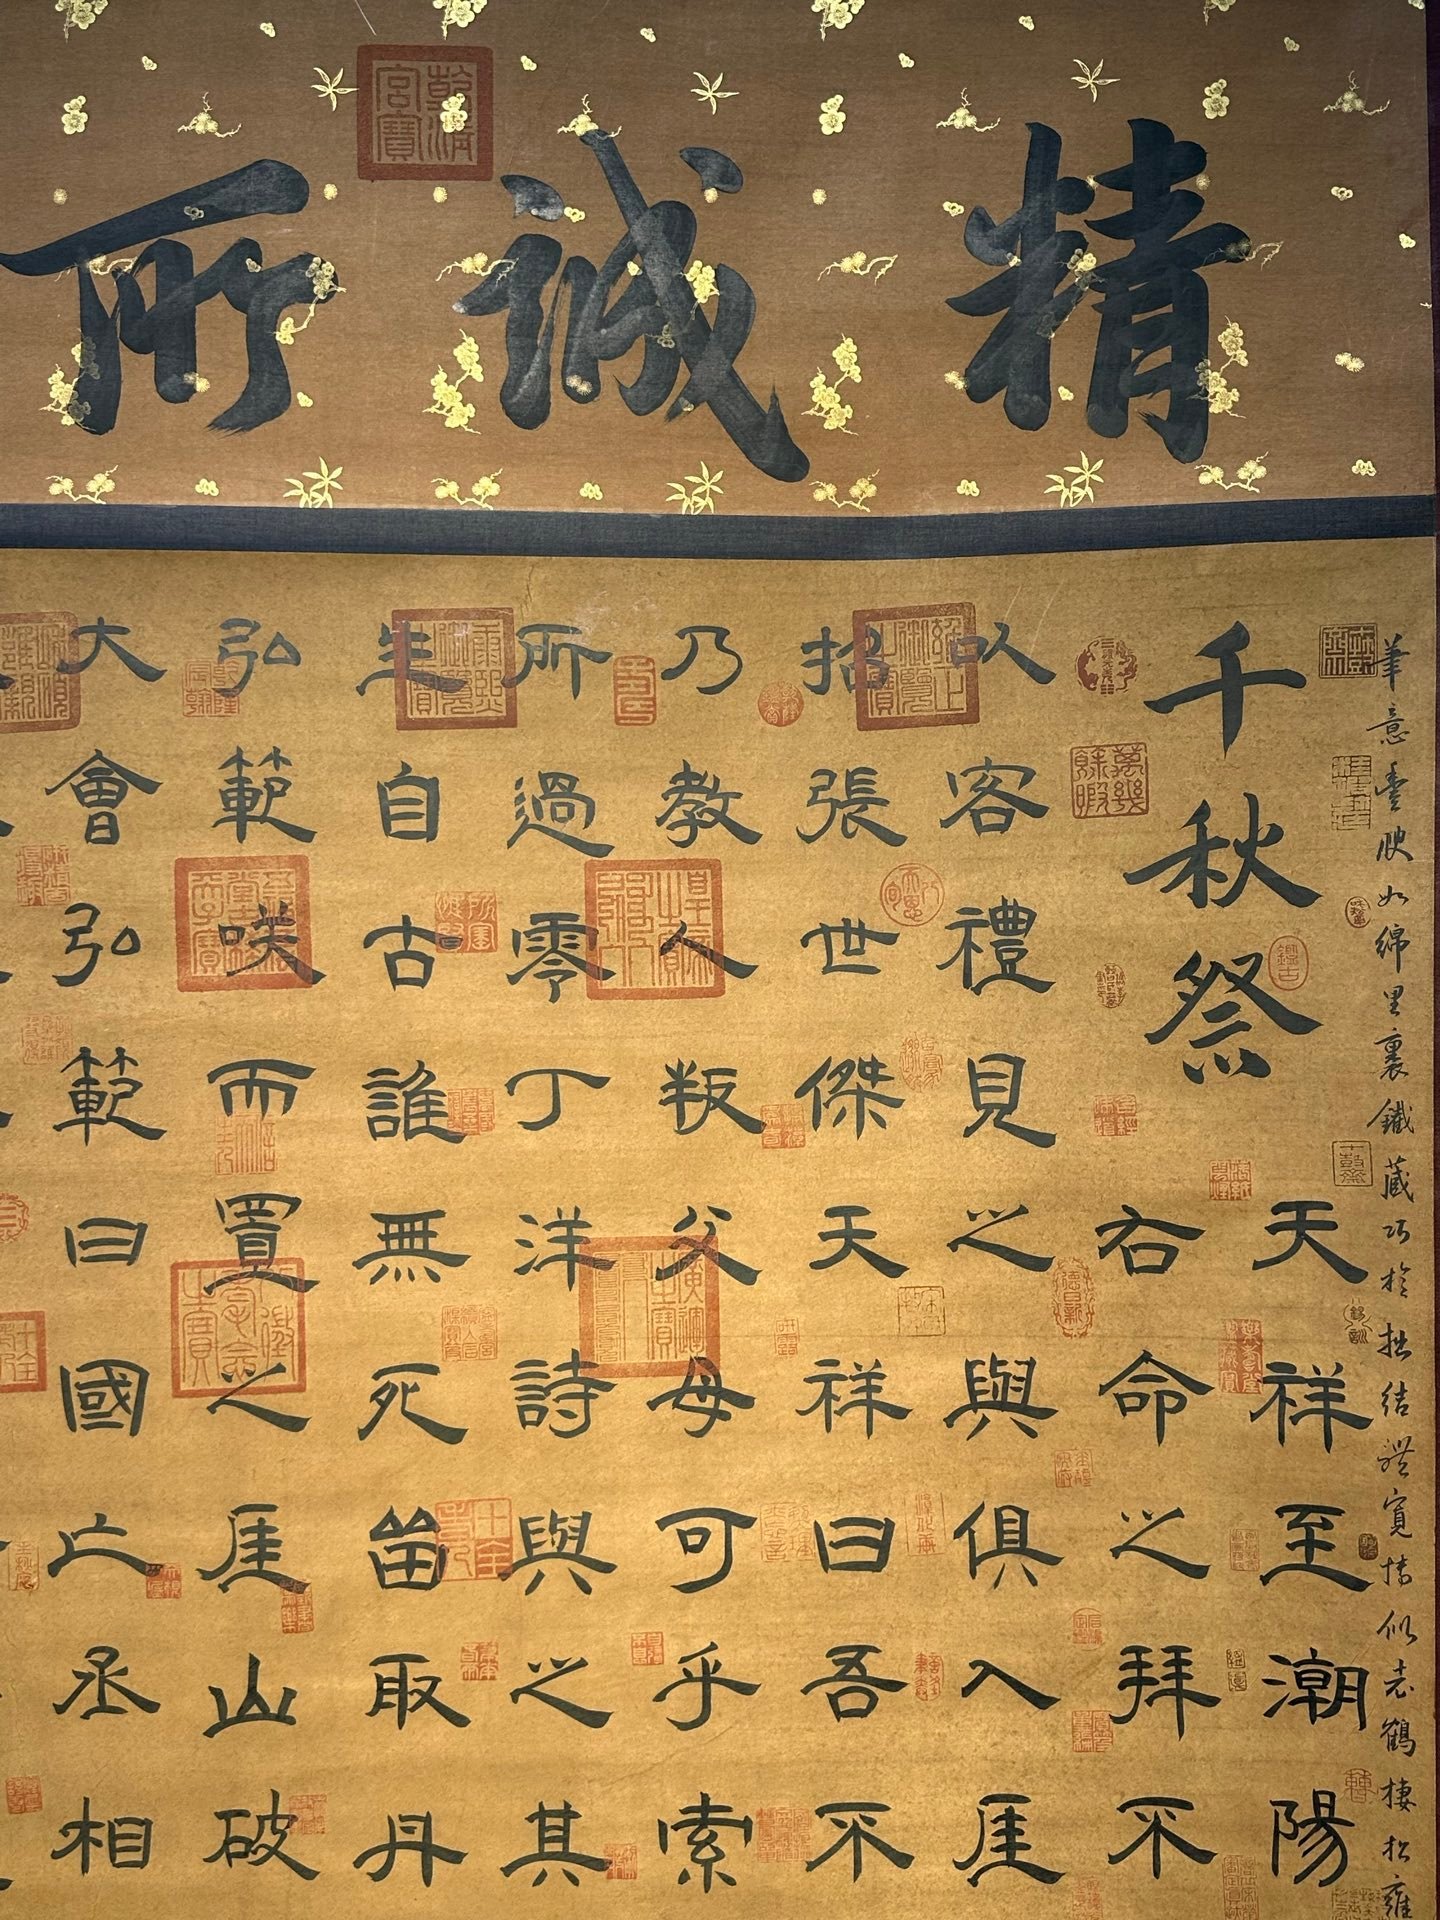 精誠所
乾清宮寶
筆意豐腴如綿里裹鐵藏巧於拙結體寬博似老鶴棲松雍
千秋祭
天祥至潮陽
右命之拜不
萬幾餘暇
以客禮見之與俱入厓
招張世傑天祥曰吾不
乃教人叛父母可乎索
所過零丁洋詩與之其
生自古誰無死留取丹
弘範咲而置之厓山破
大會弘範曰國亡丞相